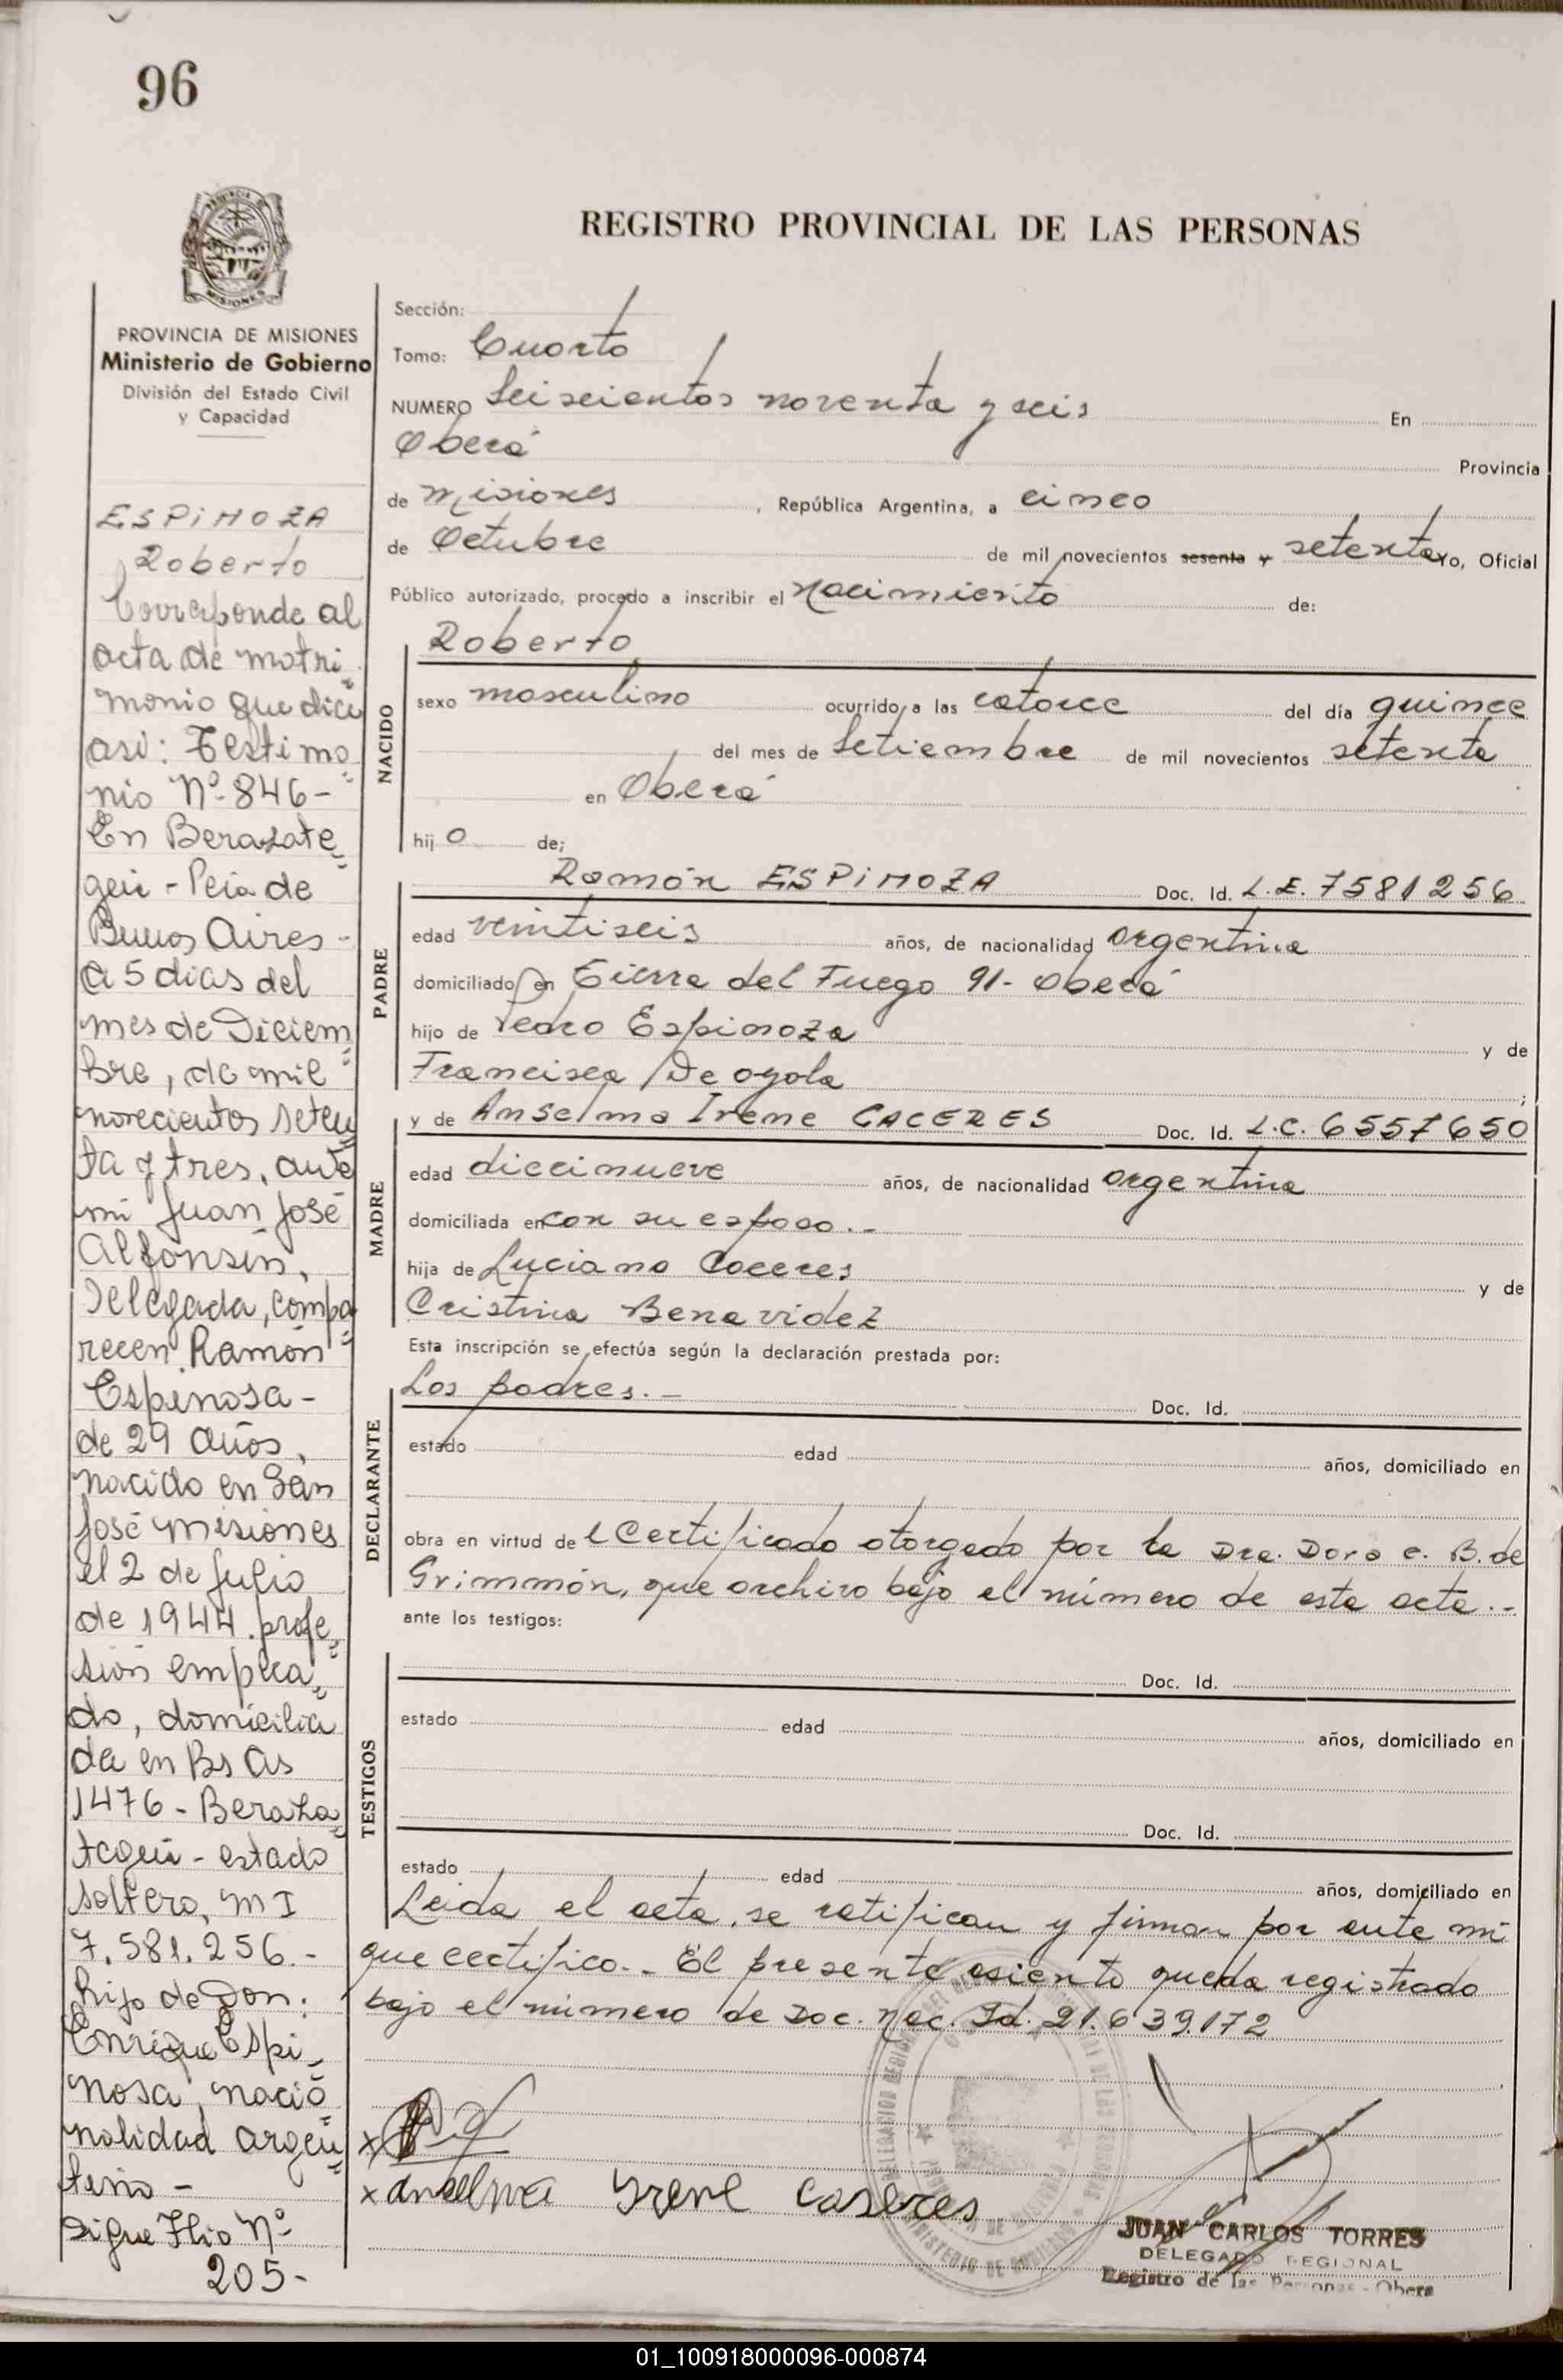 96
REGISTRO PROVINCIAL DE LAS PERSONAS
MISIONES
PROVINCIA DE MISIONES
Ministerio de Gobierno
División del Estado Civil
y Capacidad
ESPINOZA
Roberto
Corresponde al
acta de matri
monio que dice
asi: Testimo
nio Nº 846-
En Berazate
gui - Pcia de
Buenos Aires -
a 5 dias del
mes de Diciem
bre, de mil
novecientos seten
ta y tres, ante
mi Juan José
Alfonsín,
Delegada, compa
recen Ramón
Espinosa -
de 29 años,
nacido en San
José misiones
el 2 de Julio
de 1944. profe
sión emplea
do, domicilia
da en Bs As
1476 - Beraza
tegui - estado
soltero, M I
7.581.256.-
hijo de Don:
Enrique Espi
nosa, nacio
nalidad argen
tino -
Sigue Flio Nº
205-
Sección:
Tomo: Cuarto
NUMERO Seiscientos noventa y seis En
Oberá Provincia
de Misiones, República Argentina, a cinco
de Octubre de mil novecientos sesenta y setenta Yo, Oficial
Público autorizado, procedo a inscribir el nacimiento de:
NACIDO
Roberto
sexo masculino ocurrido a las catorce del día quince
del mes de Setiembre de mil novecientos setenta
en Oberá
hijo de;
PADRE
Ramón ESPINOZA Doc. Id. L.E. 7581256
edad veintiseis años, de nacionalidad argentina
domiciliado en Tierra del Fuego 91- Oberá
hijo de Pedro Espinoza y de
Francisca De oyola ;
MADRE
y de Anselma Irene CACERES Doc. Id. L.C. 6557650
edad diecinueve años, de nacionalidad argentina
domiciliada en con su esposo.-
hija de Luciano Caceres y de
Cristina Benavidez
Esta inscripción se efectúa según la declaración prestada por:
DECLARANTE
Los padres.- Doc. Id.
estado edad años, domiciliado en
obra en virtud de l Certificado otorgado por la Dra. Dora e. B. de
Grimmón, que archivo bajo el número de esta acta.-
ante los testigos:
TESTIGOS
Doc. Id.
estado edad años, domiciliado en
Doc. Id.
estado edad años, domiciliado en
Leida el acta, se ratifican y firman por ante mi
que certifico.- El presente asiento queda registrado
bajo el número de Doc. Nac. Id. 21.639.172
x
x anselma yrene caseres
JUAN CARLOS TORRES
DELEGADO REGIONAL
Registro de las Personas - Obera
01_100918000096-000874